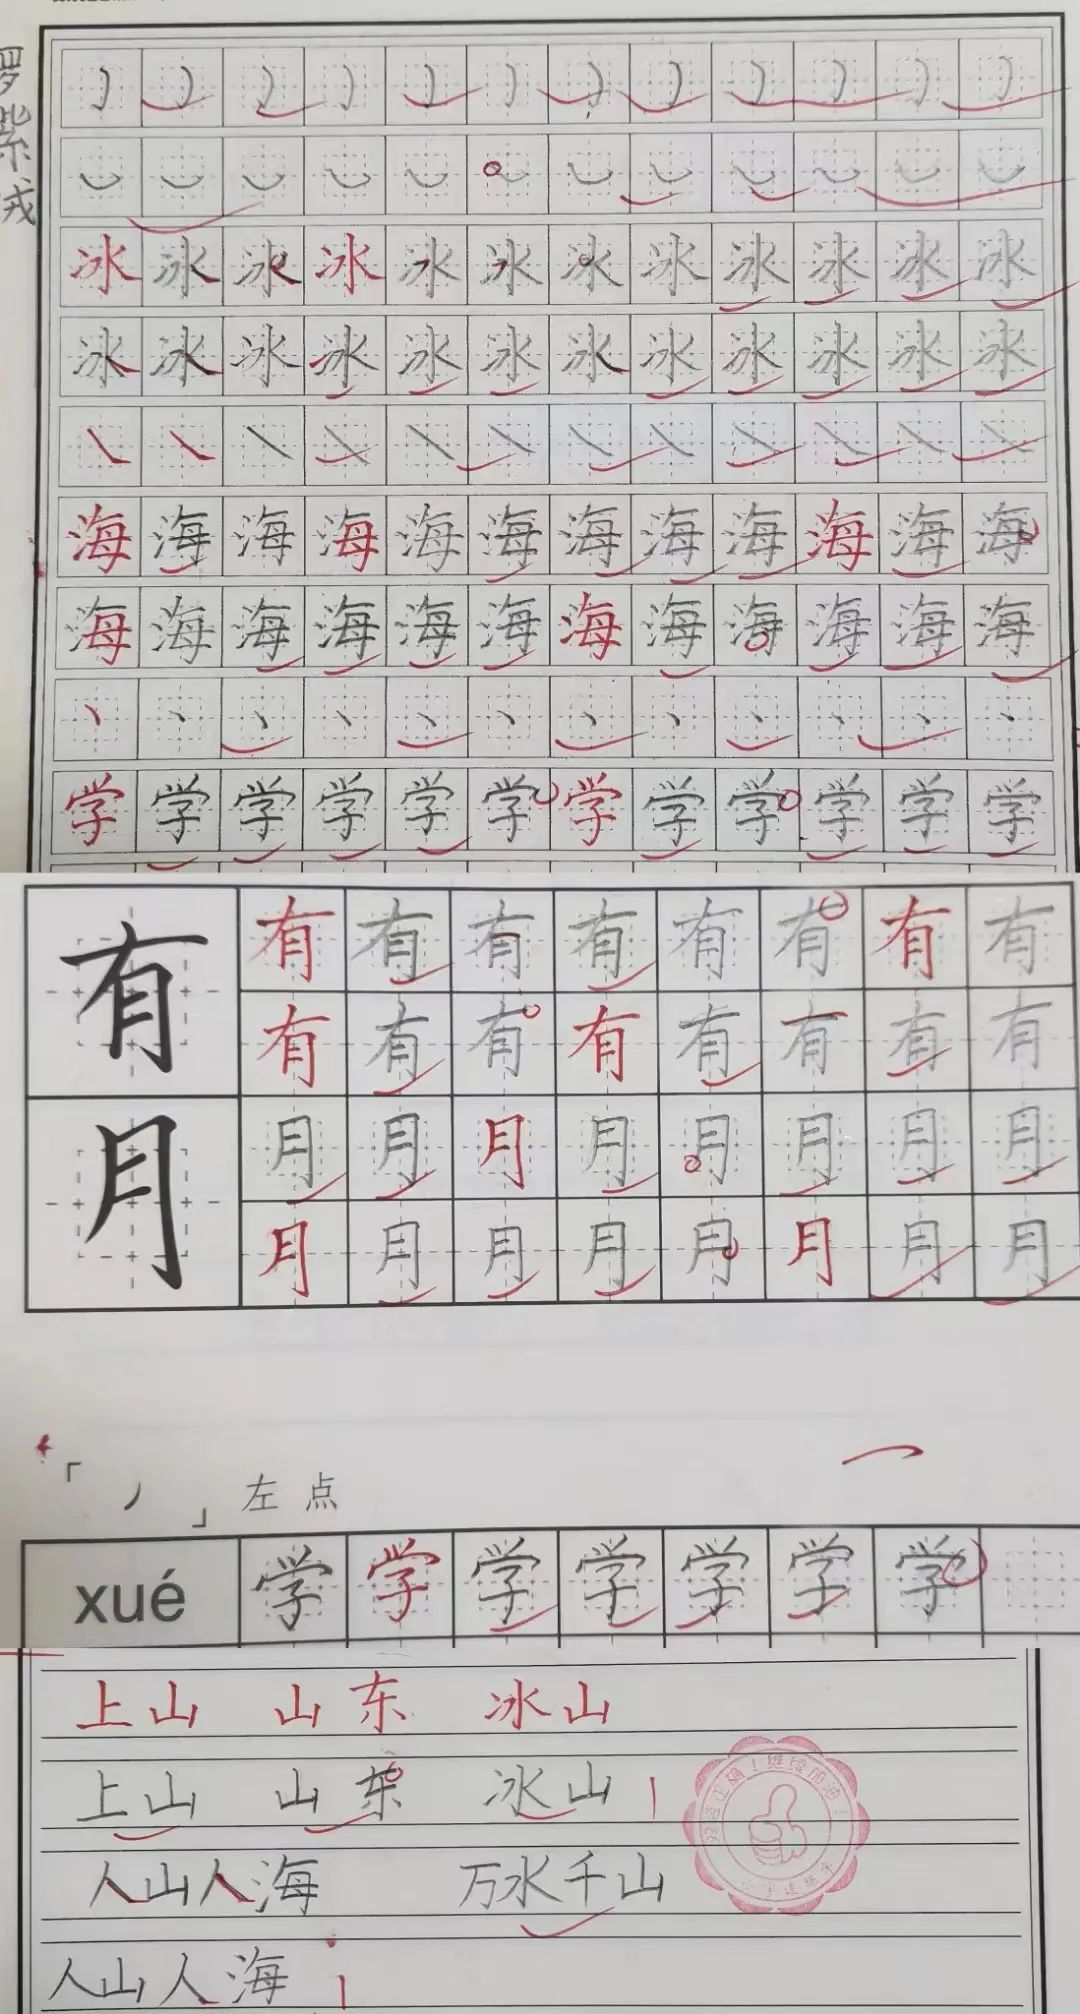 冰冰冰冰冰冰冰冰冰冰冰冰
冰冰冰冰冰冰冰冰冰冰冰冰
海海海海海海海海海海海海
海海海海海海海海海海海海
学学学学学学学学学学学学
有 有有有有有有有有
有有有有有有有有
月 月月月月月月月月
月月月月月月月月
「丿」左点
xué 学学学学学学学
上山 山东 冰山
上山 山东 冰山
人山人海 万水千山
人山人海
继续加油！